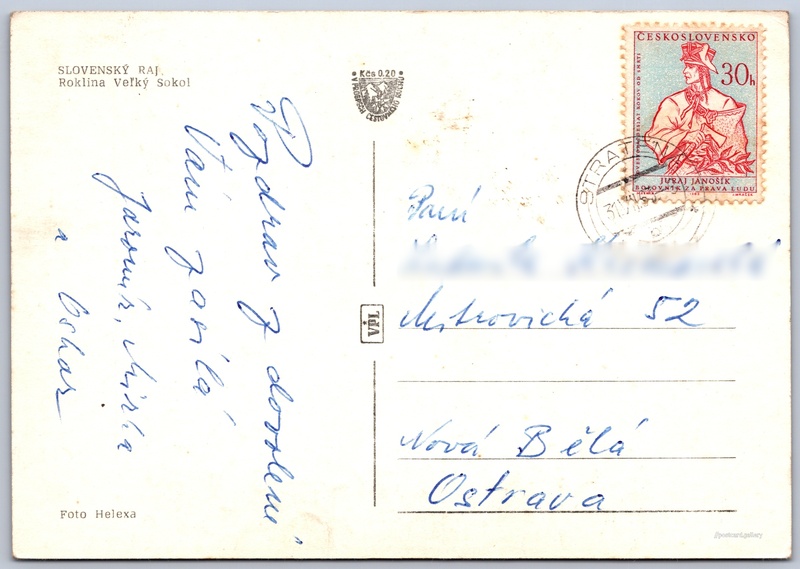 SLOVENSKÝ RAJ
Roklina Veľký Sokol
Kčs 0.20
Pozdrav z dovolené
Vám zasílá
Jaromír, Mirka
a Oskar
Foto Helexa
VPL
ČESKOSLOVENSKO
30h
JURAJ JANOŠÍK
BOJOVNÍK ZA PRÁVA ĽUDU
STRATENÁ
Paní
Mitrovická 52
Nová Bělá
Ostrava
@postcard.gallery